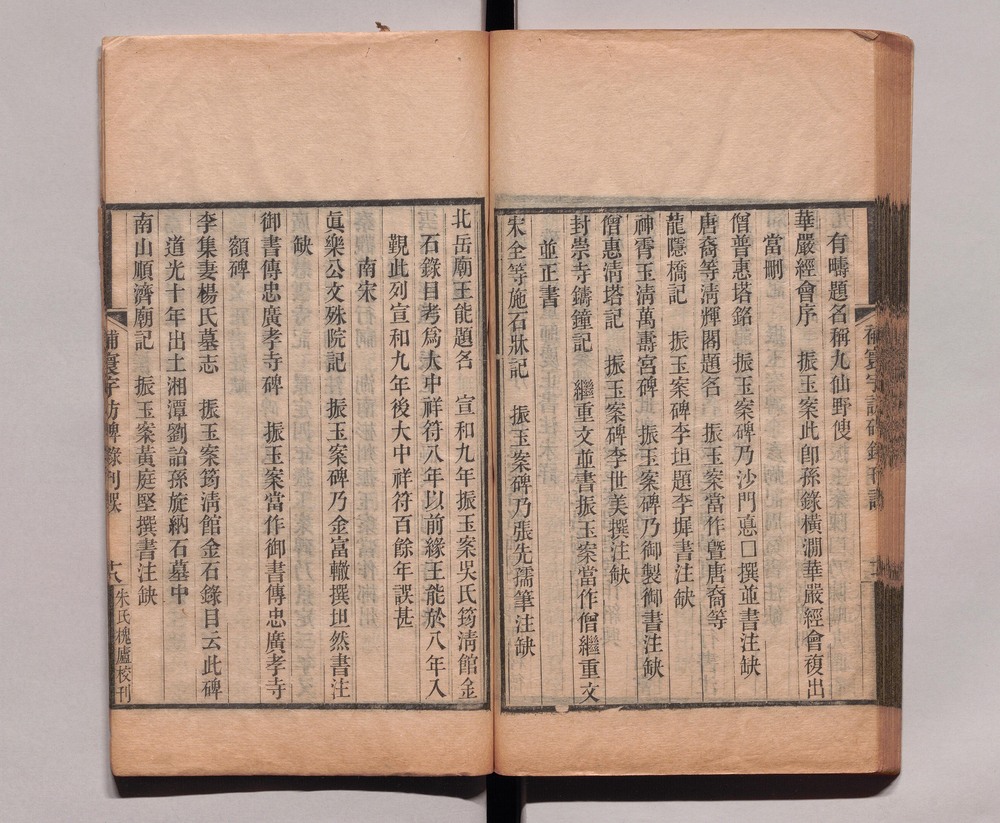 有疇題名稱九仙野傁
華嚴經會序　振玉案此卽孫錄橫澗華嚴經會複出
當刪
僧普惠塔銘　振玉案碑乃沙門惪□撰並書注缺
唐裔等淸輝閣題名　振玉案當作曁唐裔等
龍隱橋記　振玉案碑李坦題李墀書注缺
神霄玉淸萬壽宮碑　振玉案碑乃御製御書注缺
僧惠淸塔記　振玉案碑李世美撰注缺
封崇寺鑄鐘記　繼重文並書振玉案當作僧繼重文
並正書
宋全等施石牀記　振玉案碑乃張先孺筆注缺
北岳廟王能題名　宣和九年振玉案吳氏筠淸館金
石錄目考爲大中祥符八年以前緣王能於八年入
覲此列宣和九年後大中祥符百餘年誤甚
南宋
眞樂公文殊院記　振玉案碑乃金富轍撰坦然書注
缺
御書傳忠廣孝寺碑　振玉案當作御書傳忠廣孝寺
額碑
李集妻楊氏墓志　振玉案筠淸館金石錄目云此碑
道光十年出土湘潭劉詒孫旋納石墓中
南山順濟廟記　振玉案黃庭堅撰書注缺
補寰宇訪碑錄刊誤　十八
朱氏槐廬校刊